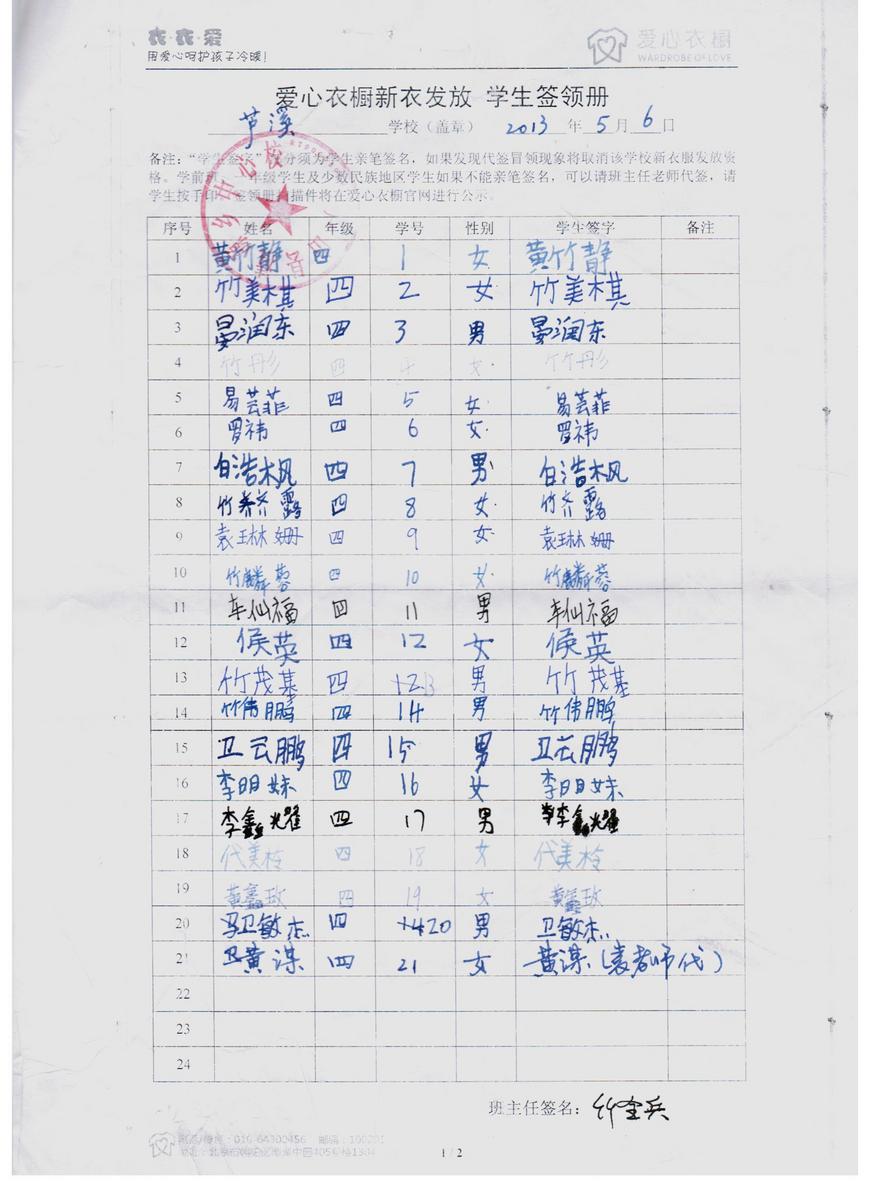 衣·衣·爱
用爱心呵护孩子冷暖!
爱心衣橱
WARDROBE OF LOVE
爱心衣橱新衣发放 学生签领册
芦溪 学校（盖章） 2013 年 5 月 6 日
备注：“学生签字”部分须为学生亲笔签名，如果发现代签冒领现象将取消该学校新衣服发放资
格。学前班、一年级学生及少数民族地区学生如果不能亲笔签名，可以请班主任老师代签，请
学生按手印。签领册扫描件将在爱心衣橱官网进行公示。
序号 姓名 年级 学号 性别 学生签字 备注
1 黄竹静 四 1 女 黄竹静
2 竹美棋 四 2 女 竹美棋
3 晏润东 四 3 男 晏润东
4 竹彤 四 4 女 竹彤
5 易芸菲 四 5 女 易芸菲
6 罗祎 四 6 女 罗祎
7 白浩枫 四 7 男 白浩枫
8 竹 露 四 8 女 竹 露
9 袁琳姗 四 9 女 袁琳姗
10 竹麟蓉 四 10 女 竹麟蓉
11 车仙福 四 11 男 车仙福
12 候英 四 12 女 候英
13 竹茂基 四 13 男 竹茂基
14 竹伟鹏 四 14 男 竹伟鹏
15 卫云鹏 四 15 男 卫云鹏
16 李明妹 四 16 女 李明妹
17 李鑫耀 四 17 男 李鑫耀
18 代美柃 四 18 女 代美柃
19 黄鑫玫 四 19 女 黄鑫玫
20 卫敏杰 四 20 男 卫敏杰
21 黄谋 四 21 女 黄谋（袁老师代）
22
23
24
班主任签名：竹金兵
1 / 2